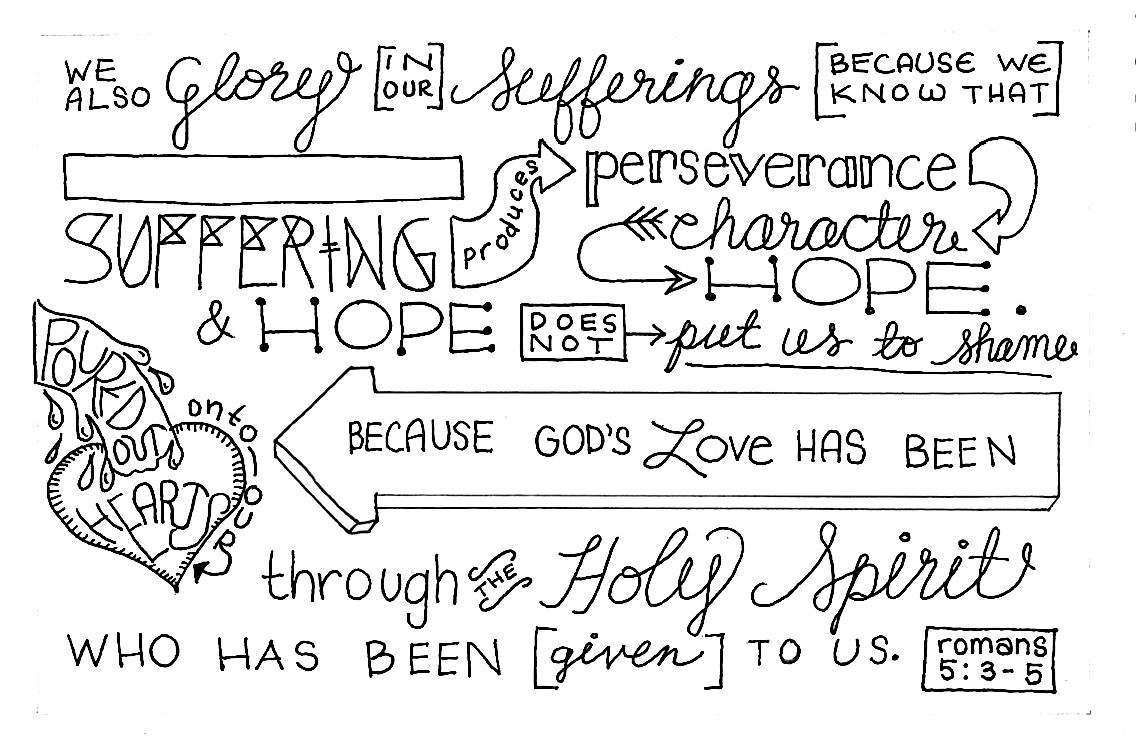 WE ALSO Glory [IN OUR] Sufferings [BECAUSE WE KNOW THAT]
SUFFERING produces perseverance
character
HOPE.
& HOPE DOES NOT put us to shame
BECAUSE GOD'S Love HAS BEEN
POURED OUT
onto our
HEARTS
through THE Holy Spirit
WHO HAS BEEN [given] TO US.
romans 5:3-5